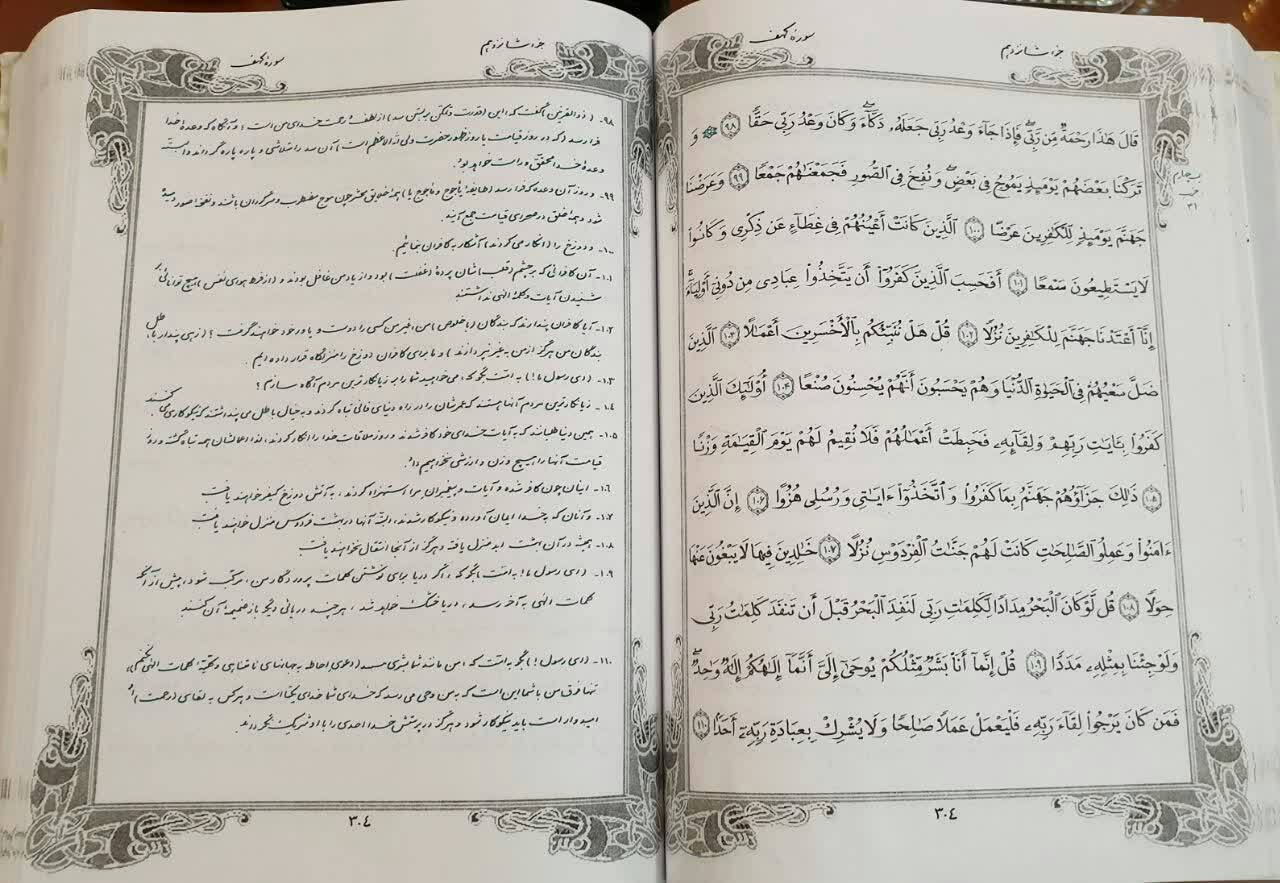 سورهٔ کهف
جزء شانزدهم
قَالَ هَٰذَا رَحْمَةٌ مِّن رَّبِّي فَإِذَا جَاءَ وَعْدُ رَبِّي جَعَلَهُ دَكَّاءَ وَكَانَ وَعْدُ رَبِّي حَقًّا ﴿٩٨﴾ وَ
تَرَكْنَا بَعْضَهُمْ يَوْمَئِذٍ يَمُوجُ فِي بَعْضٍ وَنُفِخَ فِي الصُّورِ فَجَمَعْنَاهُمْ جَمْعًا ﴿٩٩﴾ وَعَرَضْنَا
جَهَنَّمَ يَوْمَئِذٍ لِّلْكَافِرِينَ عَرْضًا ﴿١٠٠﴾ الَّذِينَ كَانَتْ أَعْيُنُهُمْ فِي غِطَاءٍ عَن ذِكْرِي وَكَانُوا
لَا يَسْتَطِيعُونَ سَمْعًا ﴿١٠١﴾ أَفَحَسِبَ الَّذِينَ كَفَرُوا أَن يَتَّخِذُوا عِبَادِي مِن دُونِي أَوْلِيَاءَ
إِنَّا أَعْتَدْنَا جَهَنَّمَ لِلْكَافِرِينَ نُزُلًا ﴿١٠٢﴾ قُلْ هَلْ نُنَبِّئُكُم بِالْأَخْسَرِينَ أَعْمَالًا ﴿١٠٣﴾ الَّذِينَ
ضَلَّ سَعْيُهُمْ فِي الْحَيَاةِ الدُّنْيَا وَهُمْ يَحْسَبُونَ أَنَّهُمْ يُحْسِنُونَ صُنْعًا ﴿١٠٤﴾ أُولَٰئِكَ الَّذِينَ
كَفَرُوا بِآيَاتِ رَبِّهِمْ وَلِقَائِهِ فَحَبِطَتْ أَعْمَالُهُمْ فَلَا نُقِيمُ لَهُمْ يَوْمَ الْقِيَامَةِ وَزْنًا
﴿١٠٥﴾ ذَٰلِكَ جَزَاؤُهُمْ جَهَنَّمُ بِمَا كَفَرُوا وَاتَّخَذُوا آيَاتِي وَرُسُلِي هُزُوًا ﴿١٠٦﴾ إِنَّ الَّذِينَ
آمَنُوا وَعَمِلُوا الصَّالِحَاتِ كَانَتْ لَهُمْ جَنَّاتُ الْفِرْدَوْسِ نُزُلًا ﴿١٠٧﴾ خَالِدِينَ فِيهَا لَا يَبْغُونَ عَنْهَا
حِوَلًا ﴿١٠٨﴾ قُل لَّوْ كَانَ الْبَحْرُ مِدَادًا لِّكَلِمَاتِ رَبِّي لَنَفِدَ الْبَحْرُ قَبْلَ أَن تَنفَدَ كَلِمَاتُ رَبِّي
وَلَوْ جِئْنَا بِمِثْلِهِ مَدَدًا ﴿١٠٩﴾ قُلْ إِنَّمَا أَنَا بَشَرٌ مِّثْلُكُمْ يُوحَىٰ إِلَيَّ أَنَّمَا إِلَٰهُكُمْ إِلَٰهٌ وَاحِدٌ
فَمَن كَانَ يَرْجُوا لِقَاءَ رَبِّهِ فَلْيَعْمَلْ عَمَلًا صَالِحًا وَلَا يُشْرِكْ بِعِبَادَةِ رَبِّهِ أَحَدًا ﴿١١٠﴾
حزب
٣١
٣٠٤
سورهٔ کهف
جزء شانزدهم
٩٨- (ذوالقرنین) گفت که: این (قدرت و تمکن بر بستن سد) از لطف و رحمت خدای من است؛ و آنگاه که وعدهٔ خدا
فرا رسد (که در روز قیامت یا روز ظهور حضرت ولی الله الاعظم است) آن سد را متلاشی و پاره پاره گرداند و البتّه
وعدهٔ خدا محقق و راست خواهد بود.
٩٩- و روز آن وعده که فرا رسد (طایفهٔ یأجوج و مأجوج یا) همهٔ خلایق محشر چون موج مضطرب و سرگردان باشند و نفخهٔ صور دمیده
شود و همهٔ خلق در صحرای قیامت جمع آیند.
١٠٠- و دوزخ را (انکار می کردند) آشکار به کافران بنمائیم.
١٠١- آن کافرانی که بر چشم (قلب)شان پردهٔ (غفلت) بود و از یاد من غافل بودند و (از فرط هوای نفس) هیچ توانائی
شنیدن آیات و کلمهٔ الهی نداشتند
١٠٢- آیا کافران پندارند که بندگان (بالخصوص) من، غیر من کسی را دوست و یاور خود خواهند گرفت؟ (زهی پندار باطل،
بندگان من هرگز از من به غیر نپردازند) و ما برای کافران دوزخ را منزلگاه قرار داده ایم.
١٠٣- (ای رسول ما!) به امّت بگو که: می خواهید شما را به زیانکارترین مردم آگاه سازم؟
١٠٤- زیانکارترین مردم آنها هستند که عمرشان را در راه دنیای فانی تباه کردند و به خیال باطل می پنداشتند که نیکوکاری می کنند
١٠٥- همین دنیا طلبانند که به آیات خدای خود کافر شدند و روز ملاقات خدا را انکار کردند، لذا اعمالشان همه تباه گشته و روز
قیامت آنها را هیچ وزن و ارزشی نخواهیم داد.
١٠٦- اینان چون کافر شده و آیات و پیغمبران مرا استهزاء کردند، به آتش دوزخ کیفر خواهند یافت
١٠٧- و آنان که به خدا ایمان آورده و نیکوکار شدند، البتّه آنها در بهشت فردوس منزل خواهند یافت
١٠٨- همیشه در آن بهشت ابد منزل یافته و هرگز از آنجا انتقال نخواهند یافت
١٠٩- (ای رسول ما!) به امّت بگو که: اگر دریا برای نوشتن کلمات پروردگار من، مرکّب شود، پیش از آنکه
کلمات الهی به آخر رسد، دریا خشک خواهد شد، هر چند دریائی دیگر باز ضمیمهٔ آن کنند
١١٠- (ای رسول!) بگو به امّت که: من مانند شما بشری هستم (دعوی احاطه به جهانهای نامتناهی و کلیّهٔ کلمات الهی نکنم)،
تنها فرق من با شما این است که به من وحی می رسد که خدای شما خدای یکتا است و هر کس به لقای (رحمت) او
امیدوار است باید نیکوکار شود و هرگز در پرستش خدا احدی را با او شریک نگرداند.
٣٠٤